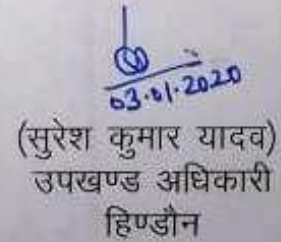 03.01.2020
(सुरेश कुमार यादव)
उपखण्ड अधिकारी
हिण्डौन